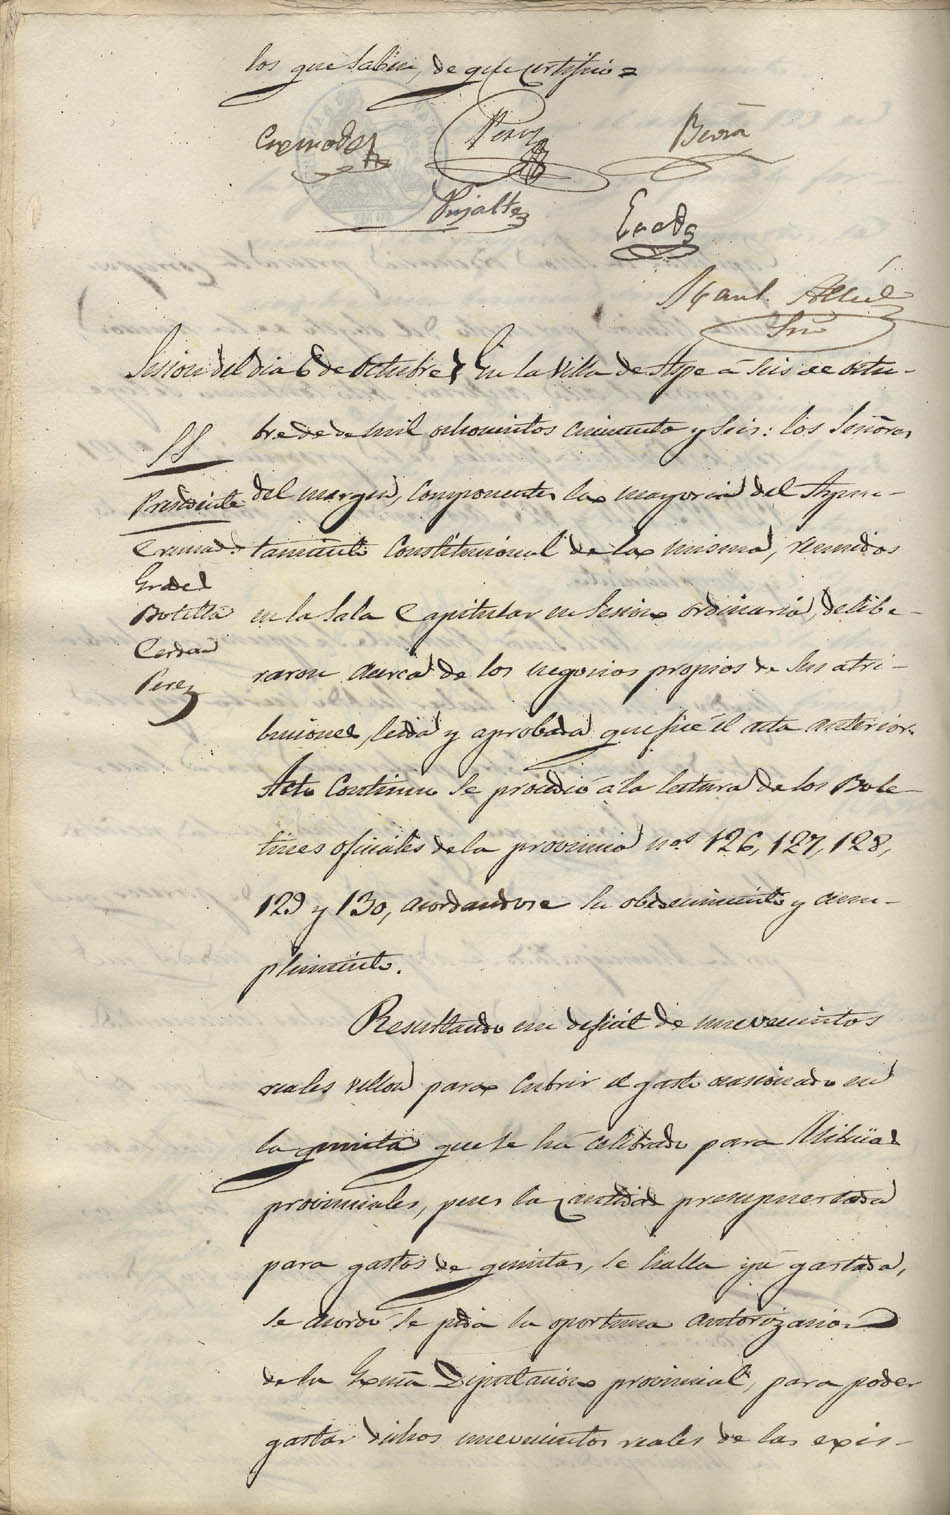 los que saben, de que certifico =
Cremades
Perez
Beviá
Pujalte
Man.l
Srio
Sesion del dia 6 de Octubre } En la villa de Aspe á seis de octu-
bre de de mil ochocientos cincuenta y seis: los Señores
SS
del margen, componentes la mayoria del Ayun-
Presidente
tamiento Constitucional de la misma, reunidos
Cremades
en la Sala Capitular en sesion ordinaria, delibe-
Botella
raron acerca de los negocios propios de sus atri-
Cerdan
Perez
buciones, leida y aprobada que fué el acta anterior.
Acto Continuo se procedió á la lectura de los Bole-
tines oficiales de la provincia n.os 126, 127, 128,
129 y 130, acordandose su obedecimiento y cum-
plimiento.
Resultando un deficit de nuevecientos
reales vellon para cubrir el gasto ocasionado en
la quinta que se há celebrado para Milicias
provinciales, pues la cantidad presupuestada
para gastos de quintas, se halla yá gastada,
se acordó se pida la oportuna autorizacion
de la Exma Diputacion provincial, para poder
gastar dichos nuevecientos reales de las exis-